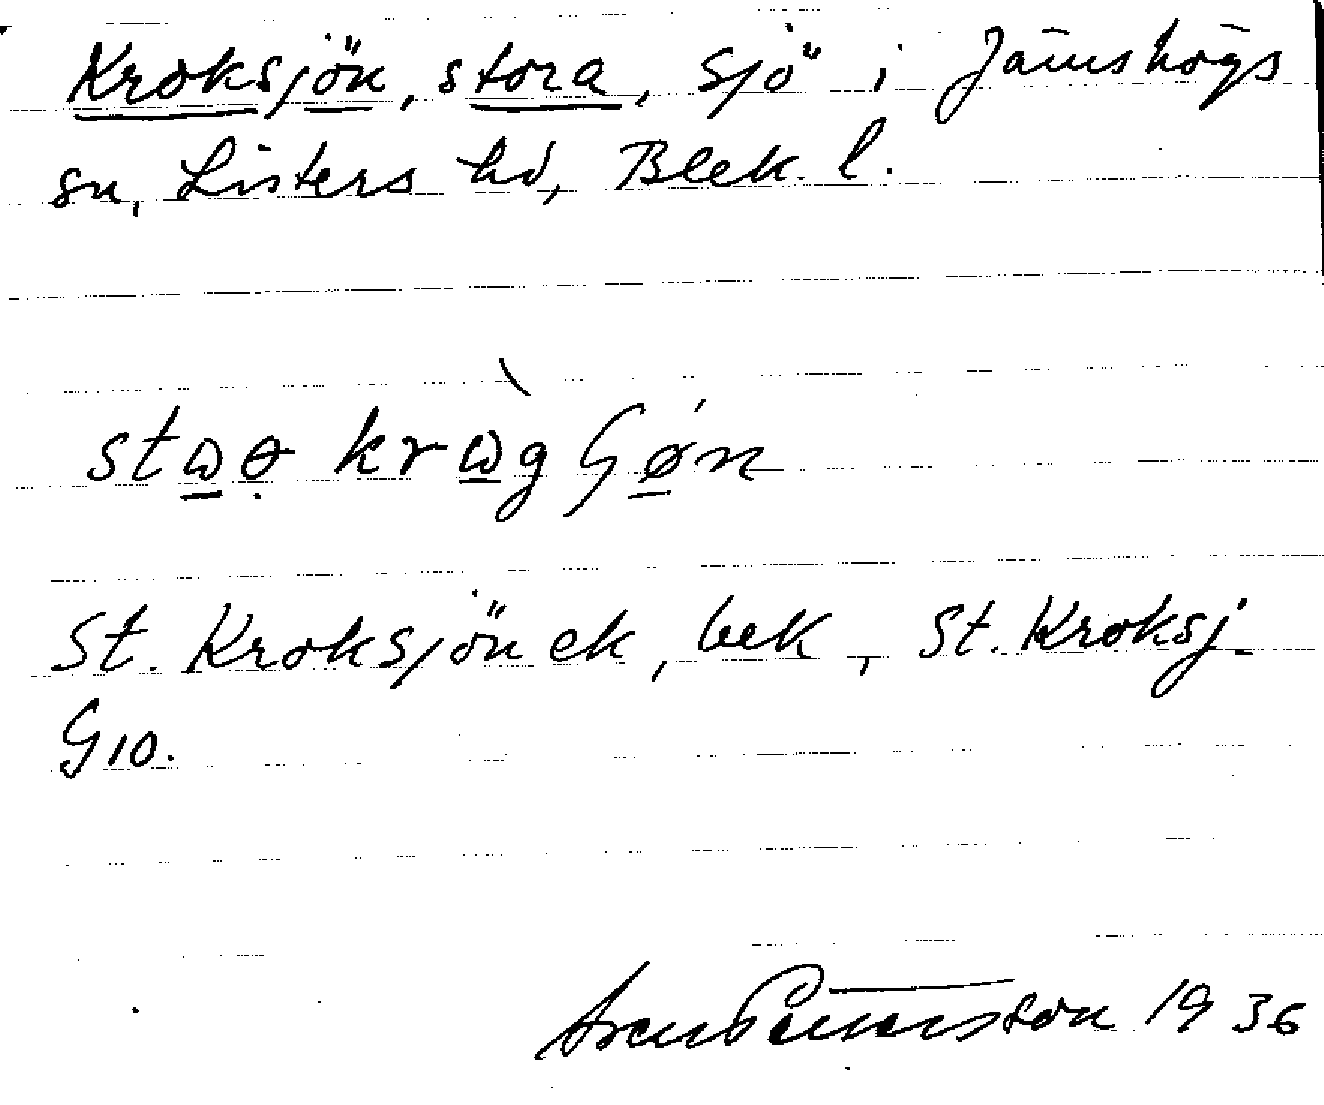 Kroksjön, stora, sjö i Jämshögs
sn, Listers hd, Blek. l.
St. Kroksjön ek, bek, St. Kroksj.
G10.
1936